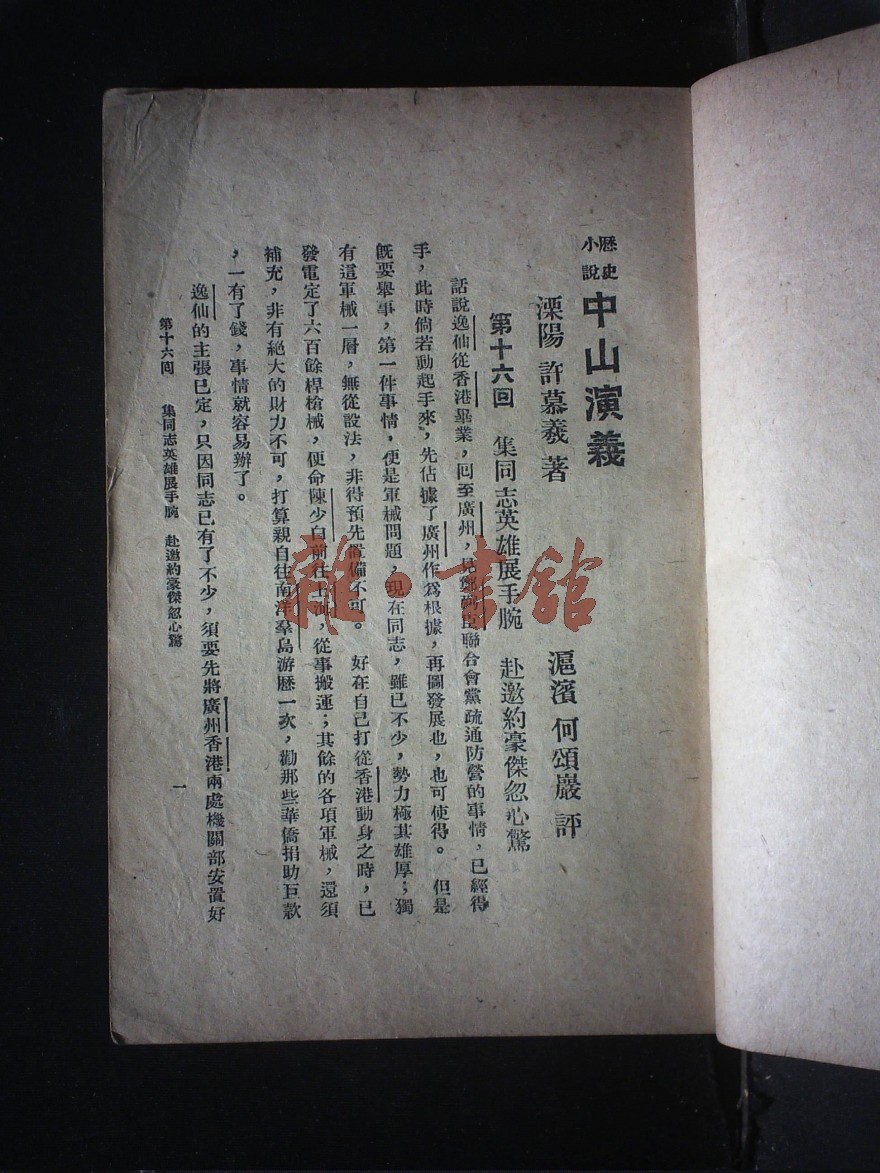 歷史小說
中山演義
溧陽 許慕羲 著
滬濱 何頌巖 評
第十六回 集同志英雄展手腕 赴邀約豪傑忽心驚
話說逸仙從香港畢業，回至廣州，見鄭弼臣聯合會黨疏通防營的事情，已經得
手，此時倘若動起手來，先佔據了廣州作爲根據，再圖發展也，也可使得。但是
旣要舉事，第一件事情，便是軍械問題，現在同志，雖已不少，勢力極其雄厚；獨
有這軍械一層，無從設法，非得預先置備不可。好在自己打從香港動身之時，已
發電定了六百餘桿槍械，便命陳少白前往上海，從事搬運；其餘的各項軍械，還須
補充，非有絕大的財力不可，打算親自往南洋羣島游歷一次，勸那些華僑捐助巨款
，一有了錢，事情就容易辦了。
逸仙的主張已定，只因同志已有了不少，須要先將廣州香港兩處機關部安置好
第十六回 集同志英雄展手腕 赴邀約豪傑忽心驚
一
雜·書館